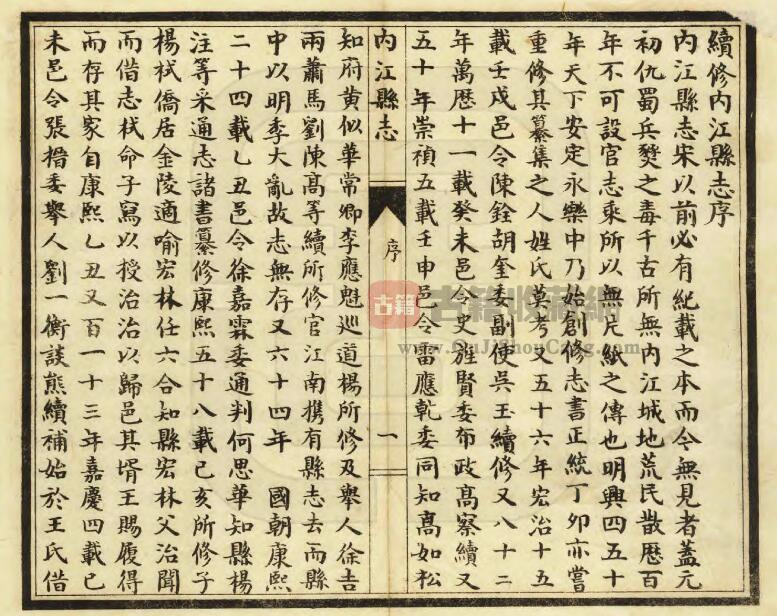 續修内江縣志序
内江縣志宋以前必有紀載之本而今無見者蓋元
初仇蜀兵燹之毒千古所無内江城地荒民散歴百
年不可設官志乘所以無片紙之傳也明興四五十
年天下安定永樂中乃始創修志書正統丁夘亦嘗
重修其纂集之人姓氏莫考又五十六年宏治十五
載壬戌邑令陳銓胡奎委副使吳玉續修又八十二
年萬歴十一載癸未邑令史旌賢委布政髙察續又
五十年崇禎五載壬申邑令雷應乾委同知髙如松
内江縣志
序
一
知府黄似華常卿李應魁巡道楊所修及舉人徐吉
兩蕭馬劉陳髙等續所修官江南携有縣志去而縣
中以明季大亂故志無存又六十四年 國朝康熙
二十四載乙丑邑令徐嘉霖委通判何思華知縣楊
注等采通志諸書纂修康熙五十八載己亥所修子
楊栻僑居金陵適喻宏林任六合知縣宏林父治聞
而借志栻命子寫以授治治以歸邑其壻王賜履得
而存其家自康熙乙丑又百一十三年嘉慶四載己
未邑令張搢委舉人劉一衡談熊續補始於王氏借
古籍
古籍收藏網
www.GuJiShouCang.com